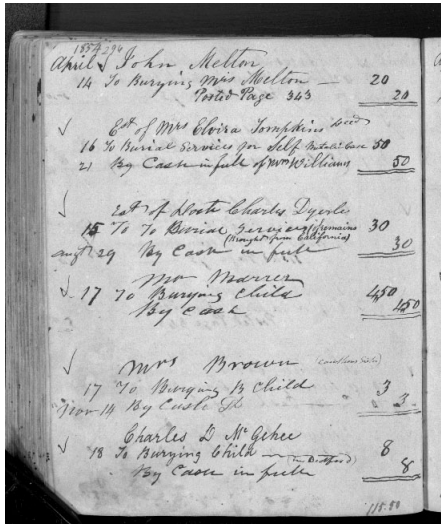 1854 296
April John Melton
14 To Burying Mrs Melton — 20
Posted Page 343 20
Est of Mrs Elvira Tompkins decd
16 To Burial Services for Self Metalic Case 50
21 By Cash in full of Wm Williams 50
Est of Doctr Charles
15 To To Burial Services (remains 30
(brought from California)
Augt 29 By Cash in full 30
Mr Marrer
17 To Burying Child 4,50
By Cash 4,50
Mrs Brown
17 To Burying B Child 3
Nov 14 By Cash 3
Charles D McGehee
18 To Burying Child — 8
By Cash in full 8
115.50